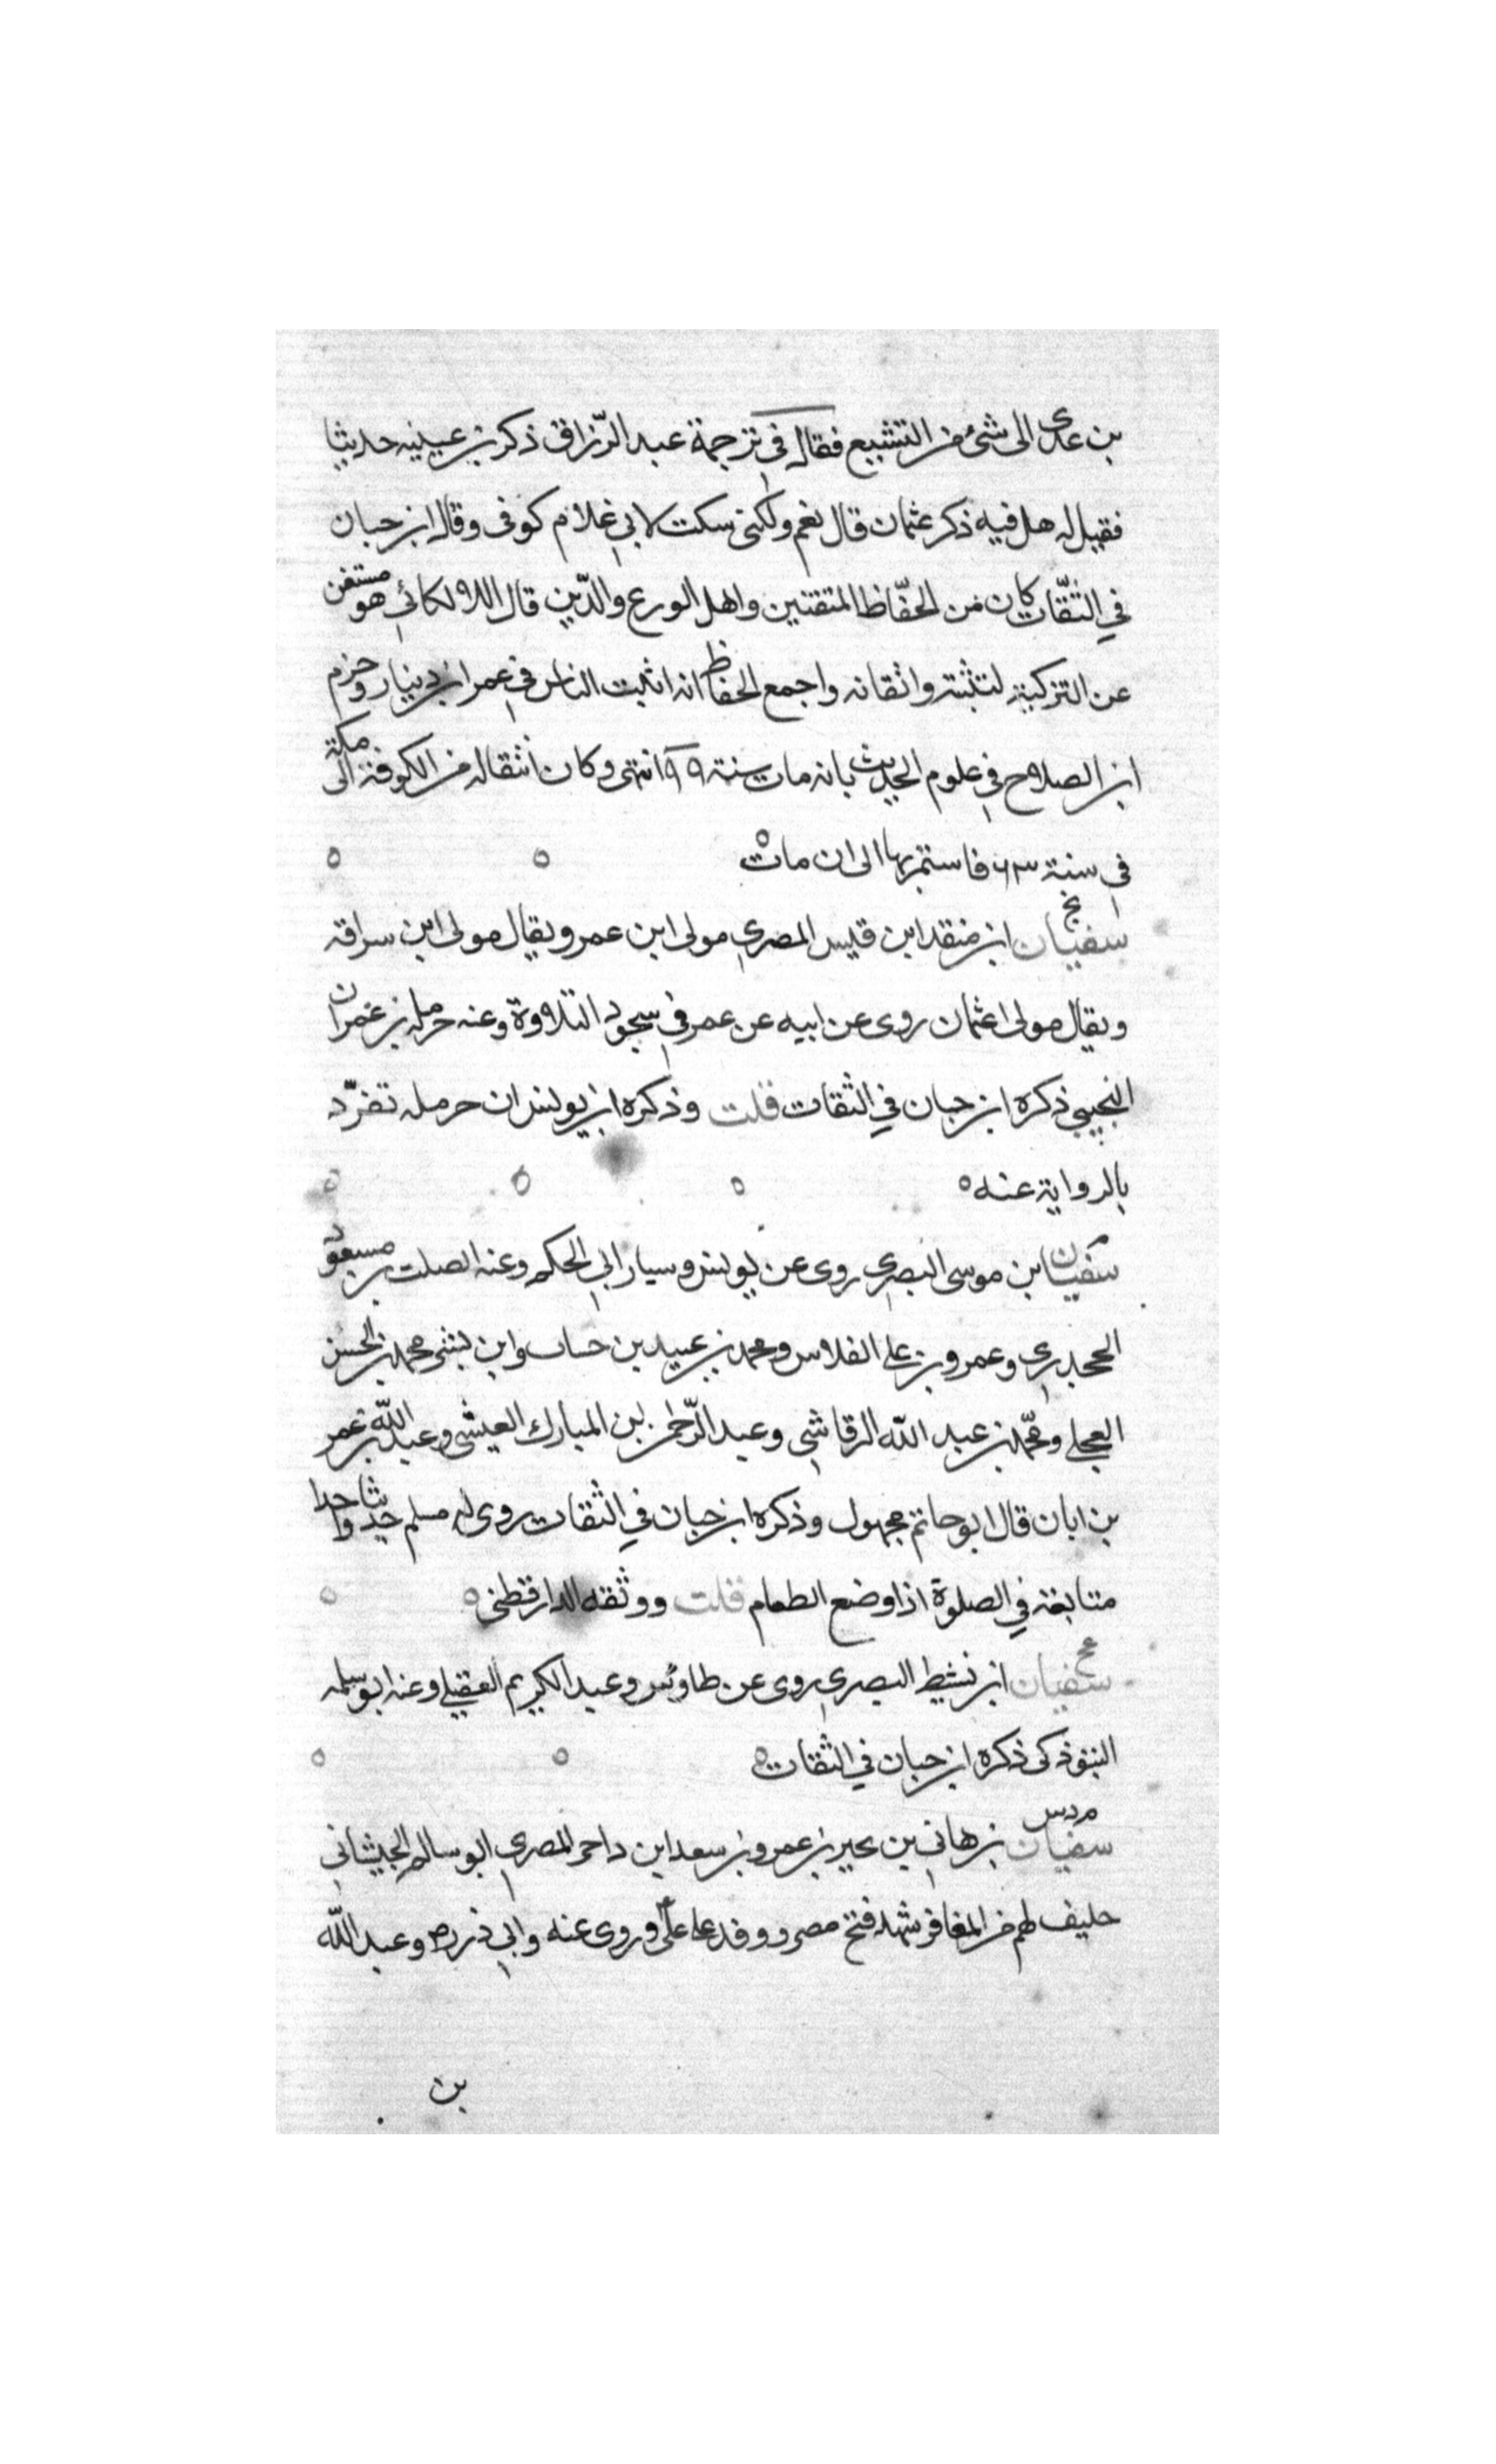 بن عدى الى شئ من التشيع فقال في ترجمة عبد الرّزاق ذكر بن عيينه حديثا
فقيل له هل فيه ذكر عثمان قال نعم ولكنى سكت لابي غلام كوفى وقال ابن حبان
في الثقّات كان من الحفّاظ المتقنين واهل الورع والدّين قال اللالكائي هو مستغن
عن التزكية لتثبته واتقانه واجمع الحفاظ انه اثبت الناس في عمر ابن دينار وجزم
ابن الصلاح في علوم الحديث بانه مات سنة ٩٩ انتهى وكان انتقاله من الكوفة الى مكة
في سنة ٦٣ فاستمر بها الى ان مات
سفيان ابن منقد ابن قليس المصري مولى ابن عمر ويقال مولى ابن سراقة
ويقال مولى عثمان روى عن ابيه عن عمر في سجود التلاوة وعنه حرمله بن عمران
التجيبي ذكره ابن حبان في الثقات قلت وذكره ابن يونس ان حرمله تفرّد
بالرواية عنه
سفيان ابن موسى البصري روى عن يونس وسيار ابي الحكم وعنه الصلت بن مسعود
الجحدري وعمرو بن على الفلاس ومحمد بن عبيد بن حساب وابن بنته محمد بن الحسن
العجلى ومحمّد بن عبد الله الرقاشي وعبد الرّحمن بن المبارك العيشى وعبد الله بن عمر
بن ابان قال ابو حاتم مجهول وذكره ابن حبان في الثقات روى له مسلم حديثا واحدا
متابعة في الصلوة اذا وضع الطعام قلت ووثقه الدارقطنى
سفيان ابن نشيط البصري روى عن طاوس وعبد الكريم العقيلى وعنه ابو سلمه
التبوذكى ذكره ابن حبان في الثقات
مدس
سفيان بن هاني بن جبر بن عمرو بن سعد ابن داحر المصري ابو سالم الجيشاني
حليف لهم من المغافر شهد فتح مصر ووفد على على وروى عنه وابي ذر وعبد الله
بن